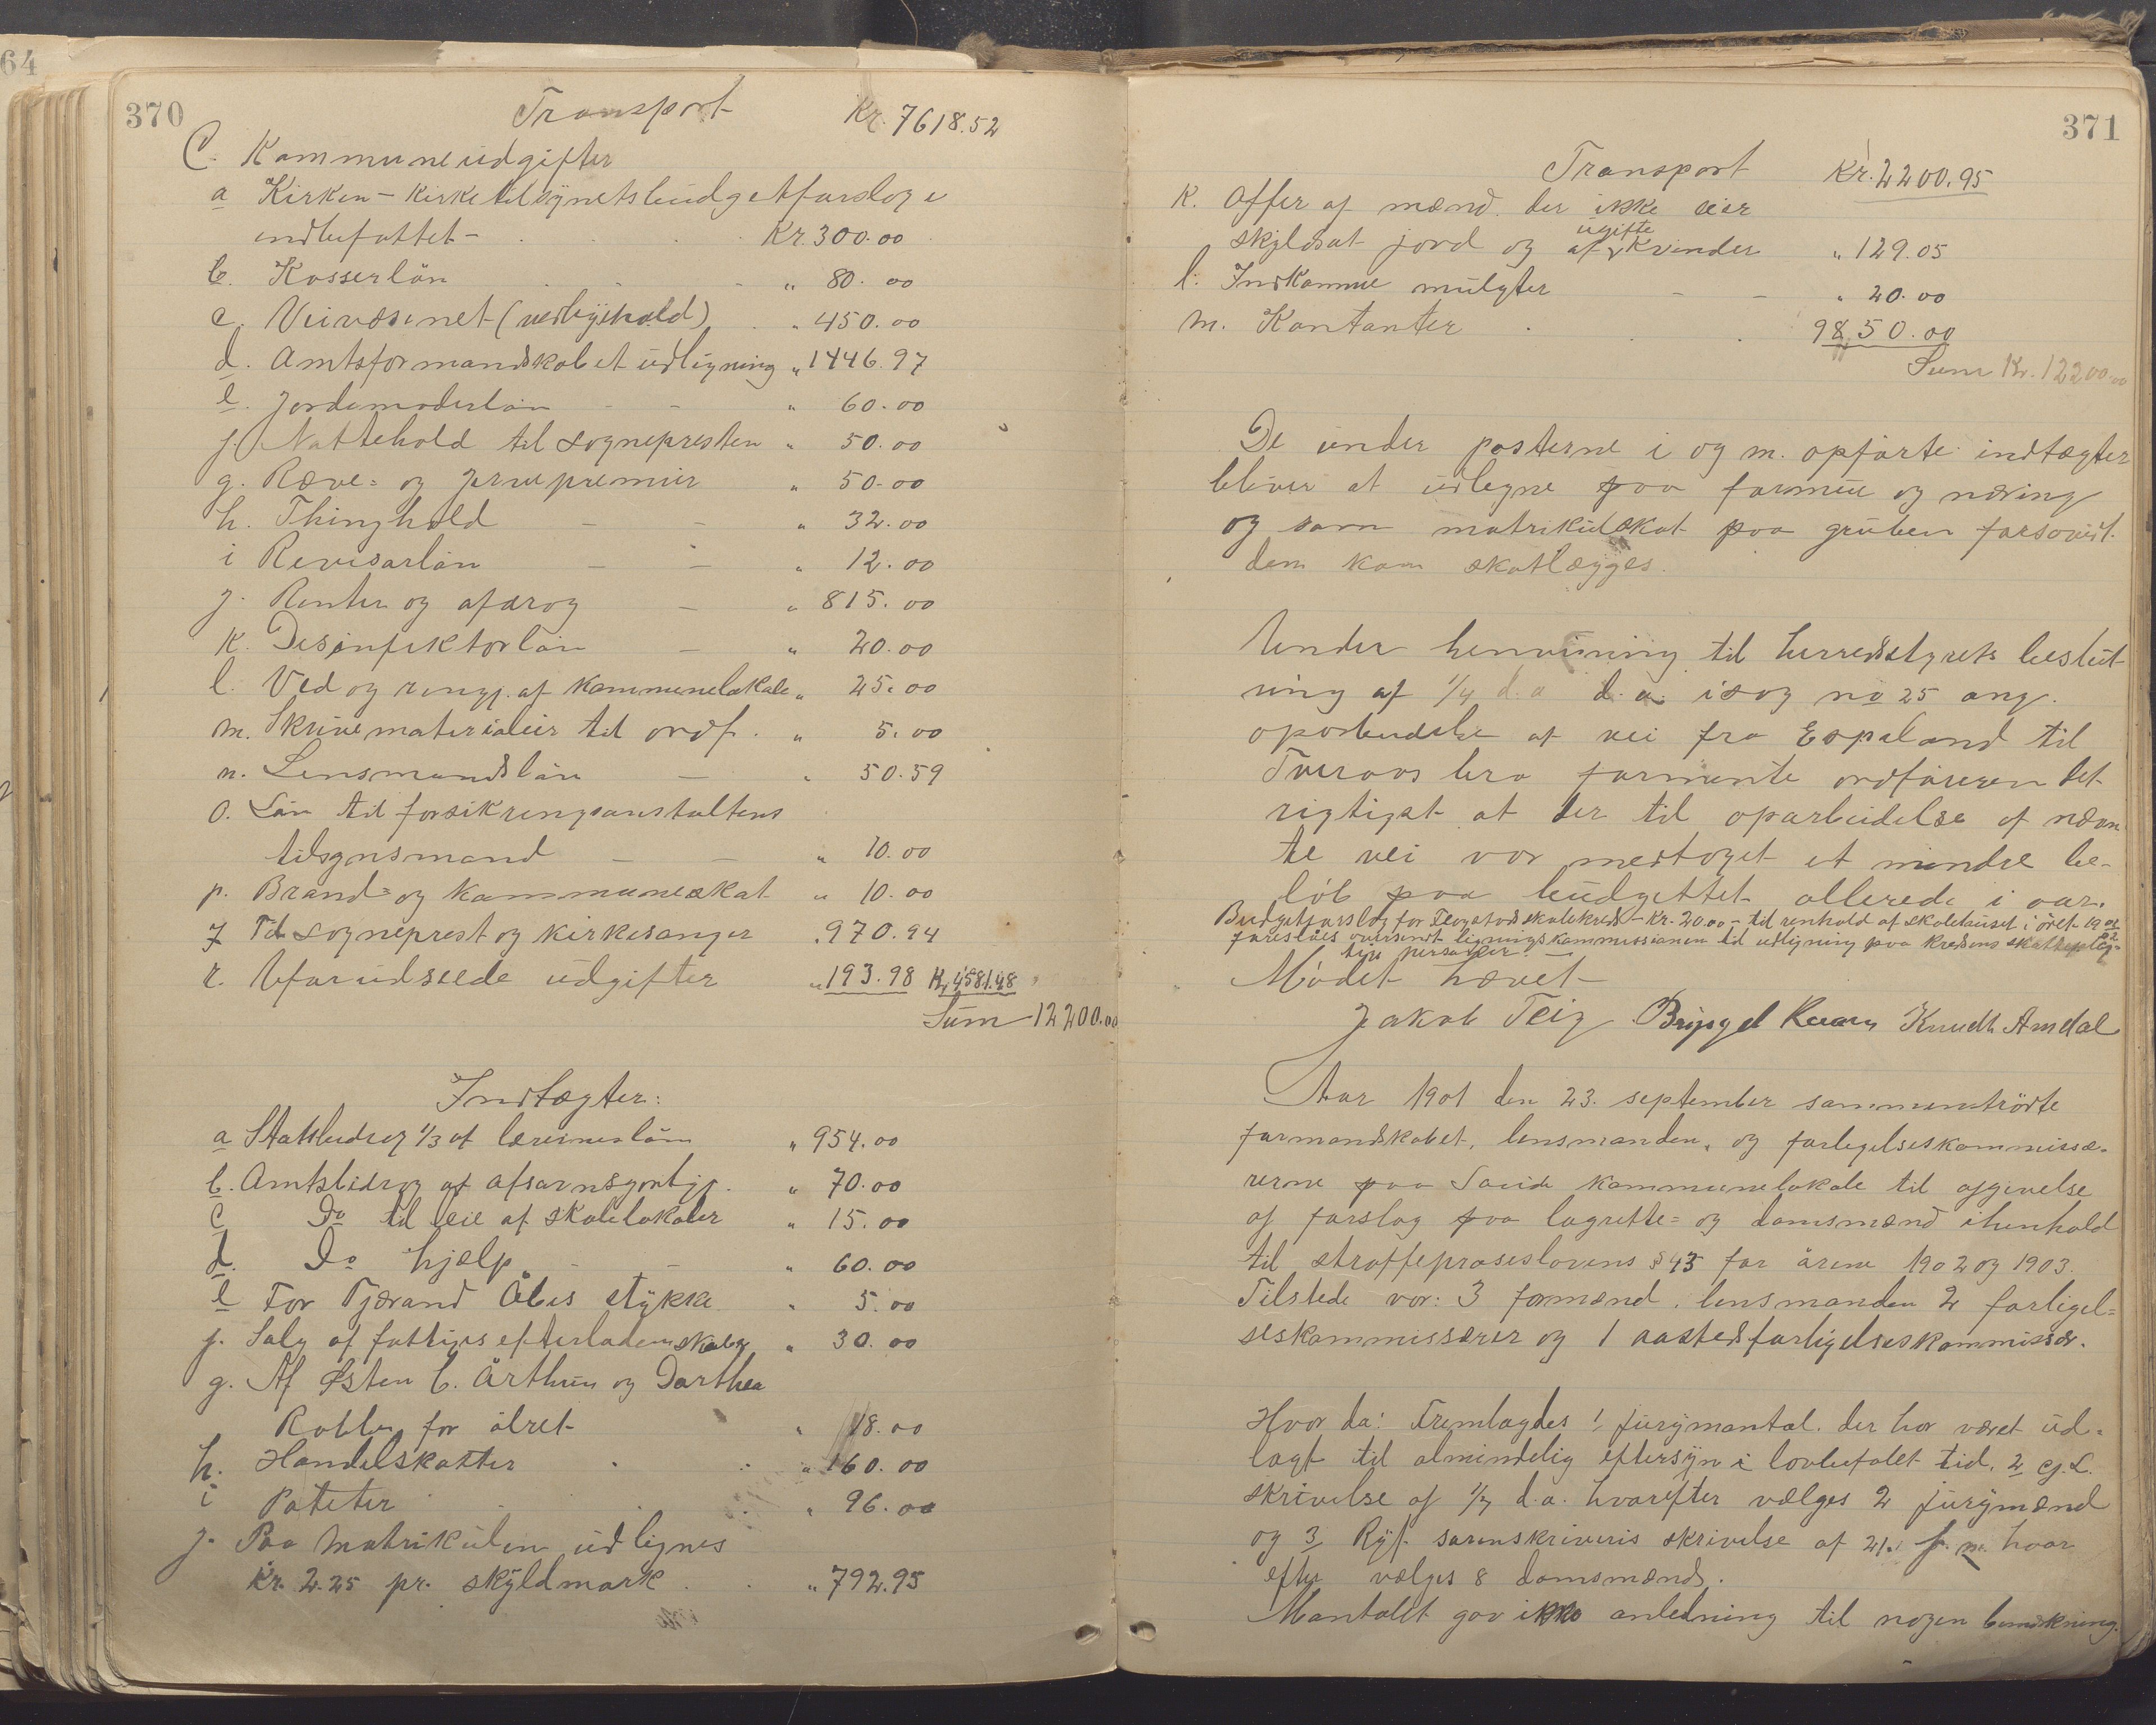 64
370
Transport Kr. 7618.52
C. Kommuneudgifter
a Kirken - kirketilsynets budgetforslag e
indbefattet - Kr. 300.00
b. Kasserløn " 80.00
c. Veivæsenet (vedligehold) " 450.00
d. Amtsformandskabet udligning " 1446.97
e. Jordemoderløn " 60.00
f. Nattehold til sognepresten " 50.00
g. Ræve= og jervepremier " 50.00
h. Thinghold " 32.00
i Revisorløn " 12.00
j. Renter og afdrag " 815.00
k. Desinfektorløn " 20.00
l. Ved og rengj. af kommunelokale " 25.00
m. Skrivematerialier til ordf. " 5.00
n. Lensmandsløn " 50.59
o. Løn til forsikringsanstaltens
tilsynsmand " 10.00
p. Brand= og kommuneskat " 10.00
q Til sogneprest og kirkesanger " 970.94
r. Uforudseede udgifter " 193.98 Kr 4581.48
Sum 12200.00
Indtægter:
a Statsbidrag 1/3 af lærernes løn " 954.00
b. Amtsbidrag af afsavnsgodtgj. " 70.00
c Do til leie af skolelokaler " 15.00
d. Do hjælp " 60.00
e For Tjærand Åbes stykke " 5.00
f. Salg af fattiges efterladenskaber " 30.00
g. Af Østen C. Årthun og Dorthea
for ålret " 18.00
h. Handelskatter " 160.00
i Pateter " 96.00
j. Paa matrikulen udlignes
Kr. 2.25 pr. skyldmark " 792.95
371
Transport Kr. 2200.95
k. Offer af mænd der ikke eier
skyldsat jord og af ugifte kvinder " 129.05
l. Indkomne mulgter " 20.00
m. Kontanter 9850.00
Sum Kr. 12200.00
De under posterne i og m. opførte indtægter
bliver at udlegne paa formue og næring
og som matrikulskat paa gruben forsovidt
dem kan skatlægges.
Under henvisning til herredsstyrets beslut
ning af 1/4 d.a d.a. isag no 25 ang.
oparbeidelse af vei fra Espeland til
Tveraas bro formente ordføreren det
rigtigst at der til oparbeidelse af næven
te vei var medtaget et mindre be-
løb paa budgettet allerede i aar.
Budgetforslag for Teogstad skolekreds - Kr. 20.00 - til renhold af skolehuset i året 1902
foreslåes oversendt ligningskommissionen til udligning paa kredsens skatteplig-
tige personer.
Mødet hævet
Jakob Teig Knudt Amdal
Aar 1901 den 23. september sammentrådte
formandskabet, lensmanden, og forligelseskommissæ-
rerne paa Sauda kommunelokale til afgivelse
af forslag paa lagrette= og domsmænd ihenhold
til straffeproseslovens § 43 for årene 1902 og 1903.
Tilstede var: 3 formænd, lensmanden 2 forligel=
seskommissærer og 1 aastedsforligelseskommissær.
Hvor da: Fremlagdes 1, jurymantal, der har været ud-
lagt til almindelig eftersyn i lovbefalet tid, 2 cj. L.
skrivelse af 1/7 d.a. hvorefter vælges 2 jurymænd
og 3 Ryf. sorenskriveris skrivelse af 21. f. m. hvor
efter vælges 8 domsmænd.
Mantallt gav ikke anledning til nogen bemærkning.